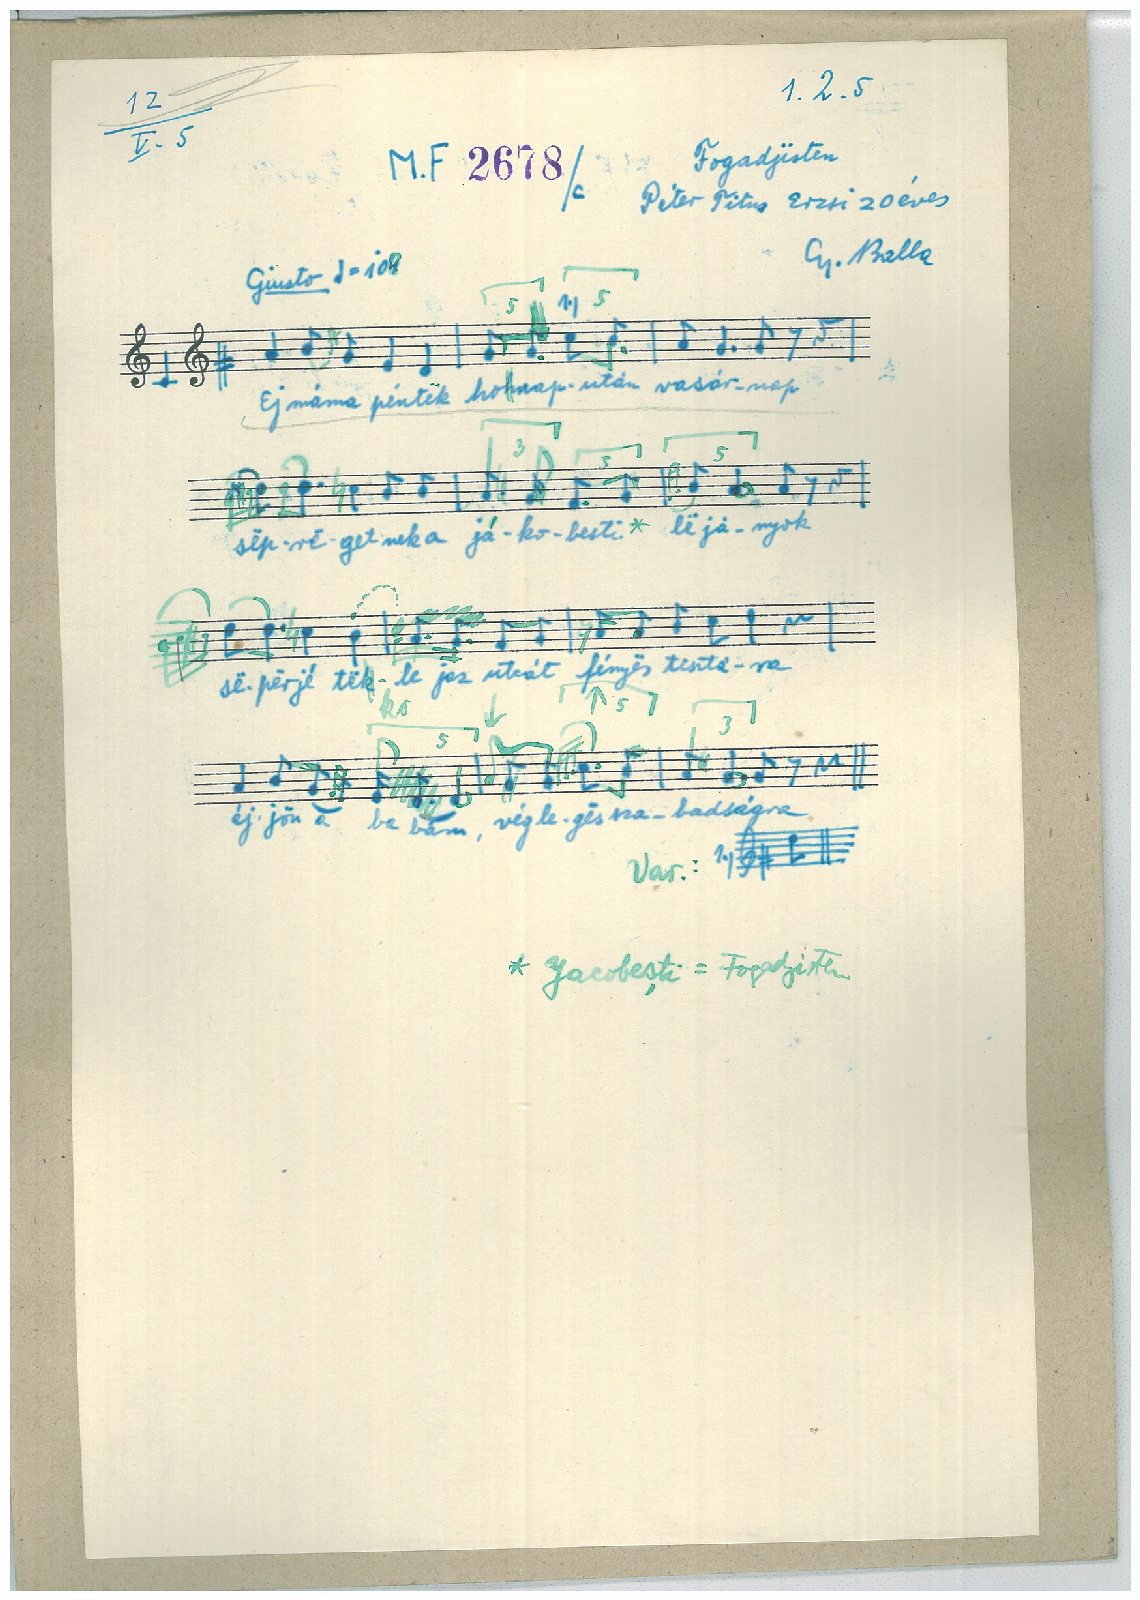 12
V. 5
1. 2. 5
M.F 2678/c
Fogadjisten
Péter Titus Erzsi 20 éves
Gy. Balla
Giusto ♩=108
5 1.) 5
Ej máma péntëk hohnap-után vasár-nap
3 5 5
sëp-rë-getnek a já-ko-besti * lëjá-nyok
së-përjé tëk-lë jaz utcát fényës
ks
5 5 3
éj-jön a ba bám, végle-gës sza-badságra
Var.: 1.)
* Jacobești = Fogadjisten